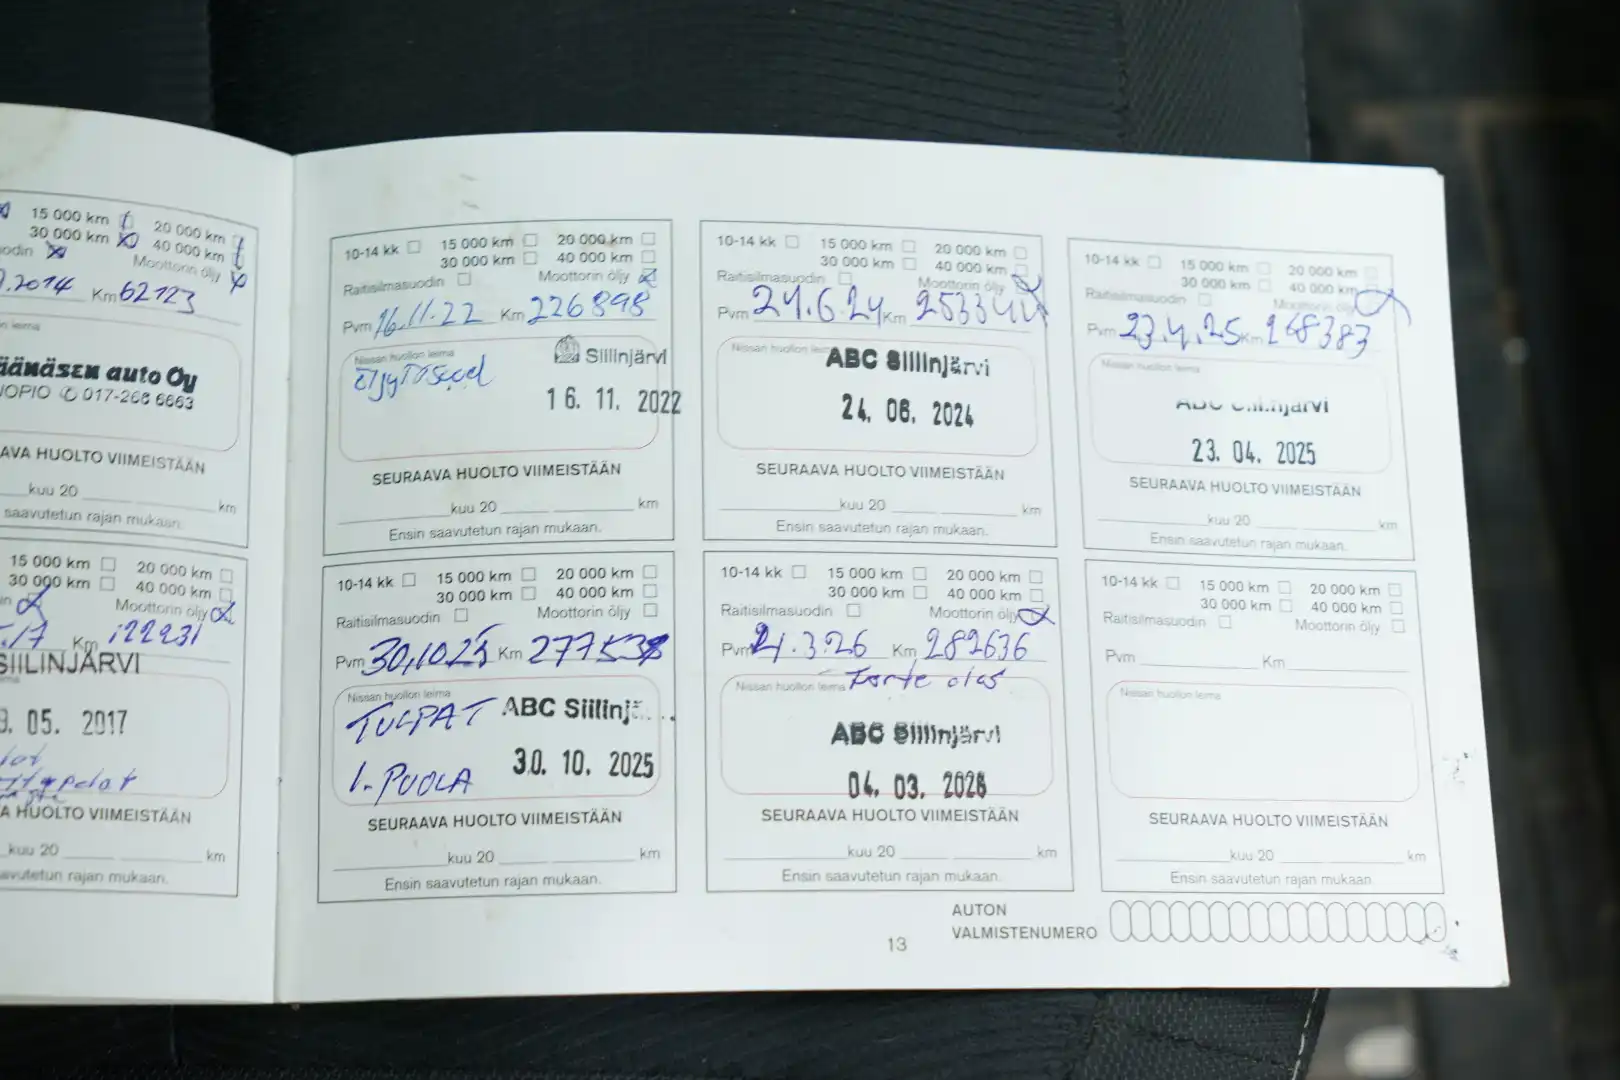 15 000 km 20 000 km
30 000 km 40 000 km
Moottorin öljy
.2014 Km 62123
auto Oy
017-268 6663
HUOLTO VIIMEISTÄÄN
kuu 20 km
saavutetun rajan mukaan.
15 000 km 20 000 km
30 000 km 40 000 km
Moottorin öljy
Km 122231
SIILINJÄRVI
05. 2017
HUOLTO VIIMEISTÄÄN
kuu 20 km
rajan mukaan.
10-14 kk 15 000 km 20 000 km
30 000 km 40 000 km
Raitisilmasuodin Moottorin öljy
Pvm 16.11.22 Km 226898
Nissan huollon leima
Siilinjärvi
16. 11. 2022
SEURAAVA HUOLTO VIIMEISTÄÄN
kuu 20 km
Ensin saavutetun rajan mukaan.
10-14 kk 15 000 km 20 000 km
30 000 km 40 000 km
Raitisilmasuodin Moottorin öljy
Pvm 24.6.24 Km 253344
Nissan huollon leima
ABC Siilinjärvi
24. 06. 2024
SEURAAVA HUOLTO VIIMEISTÄÄN
kuu 20 km
Ensin saavutetun rajan mukaan.
10-14 kk 15 000 km 20 000 km
30 000 km 40 000 km
Raitisilmasuodin Moottorin öljy
Pvm 23.4.25 Km 268383
Nissan huollon leima
23. 04. 2025
SEURAAVA HUOLTO VIIMEISTÄÄN
kuu 20 km
Ensin saavutetun rajan mukaan.
10-14 kk 15 000 km 20 000 km
30 000 km 40 000 km
Raitisilmasuodin Moottorin öljy
Pvm 30.10.25 Km 277538
Nissan huollon leima
TULPAT ABC
30. 10. 2025
1. PUOLA
SEURAAVA HUOLTO VIIMEISTÄÄN
kuu 20 km
Ensin saavutetun rajan mukaan.
10-14 kk 15 000 km 20 000 km
30 000 km 40 000 km
Raitisilmasuodin Moottorin öljy
Pvm 4.3.26 Km 282636
Nissan huollon leima
ABC Siilinjärvi
04. 03. 2026
SEURAAVA HUOLTO VIIMEISTÄÄN
kuu 20 km
Ensin saavutetun rajan mukaan.
10-14 kk 15 000 km 20 000 km
30 000 km 40 000 km
Raitisilmasuodin Moottorin öljy
Pvm Km
Nissan huollon leima
SEURAAVA HUOLTO VIIMEISTÄÄN
kuu 20 km
Ensin saavutetun rajan mukaan
AUTON
VALMISTENUMERO
13